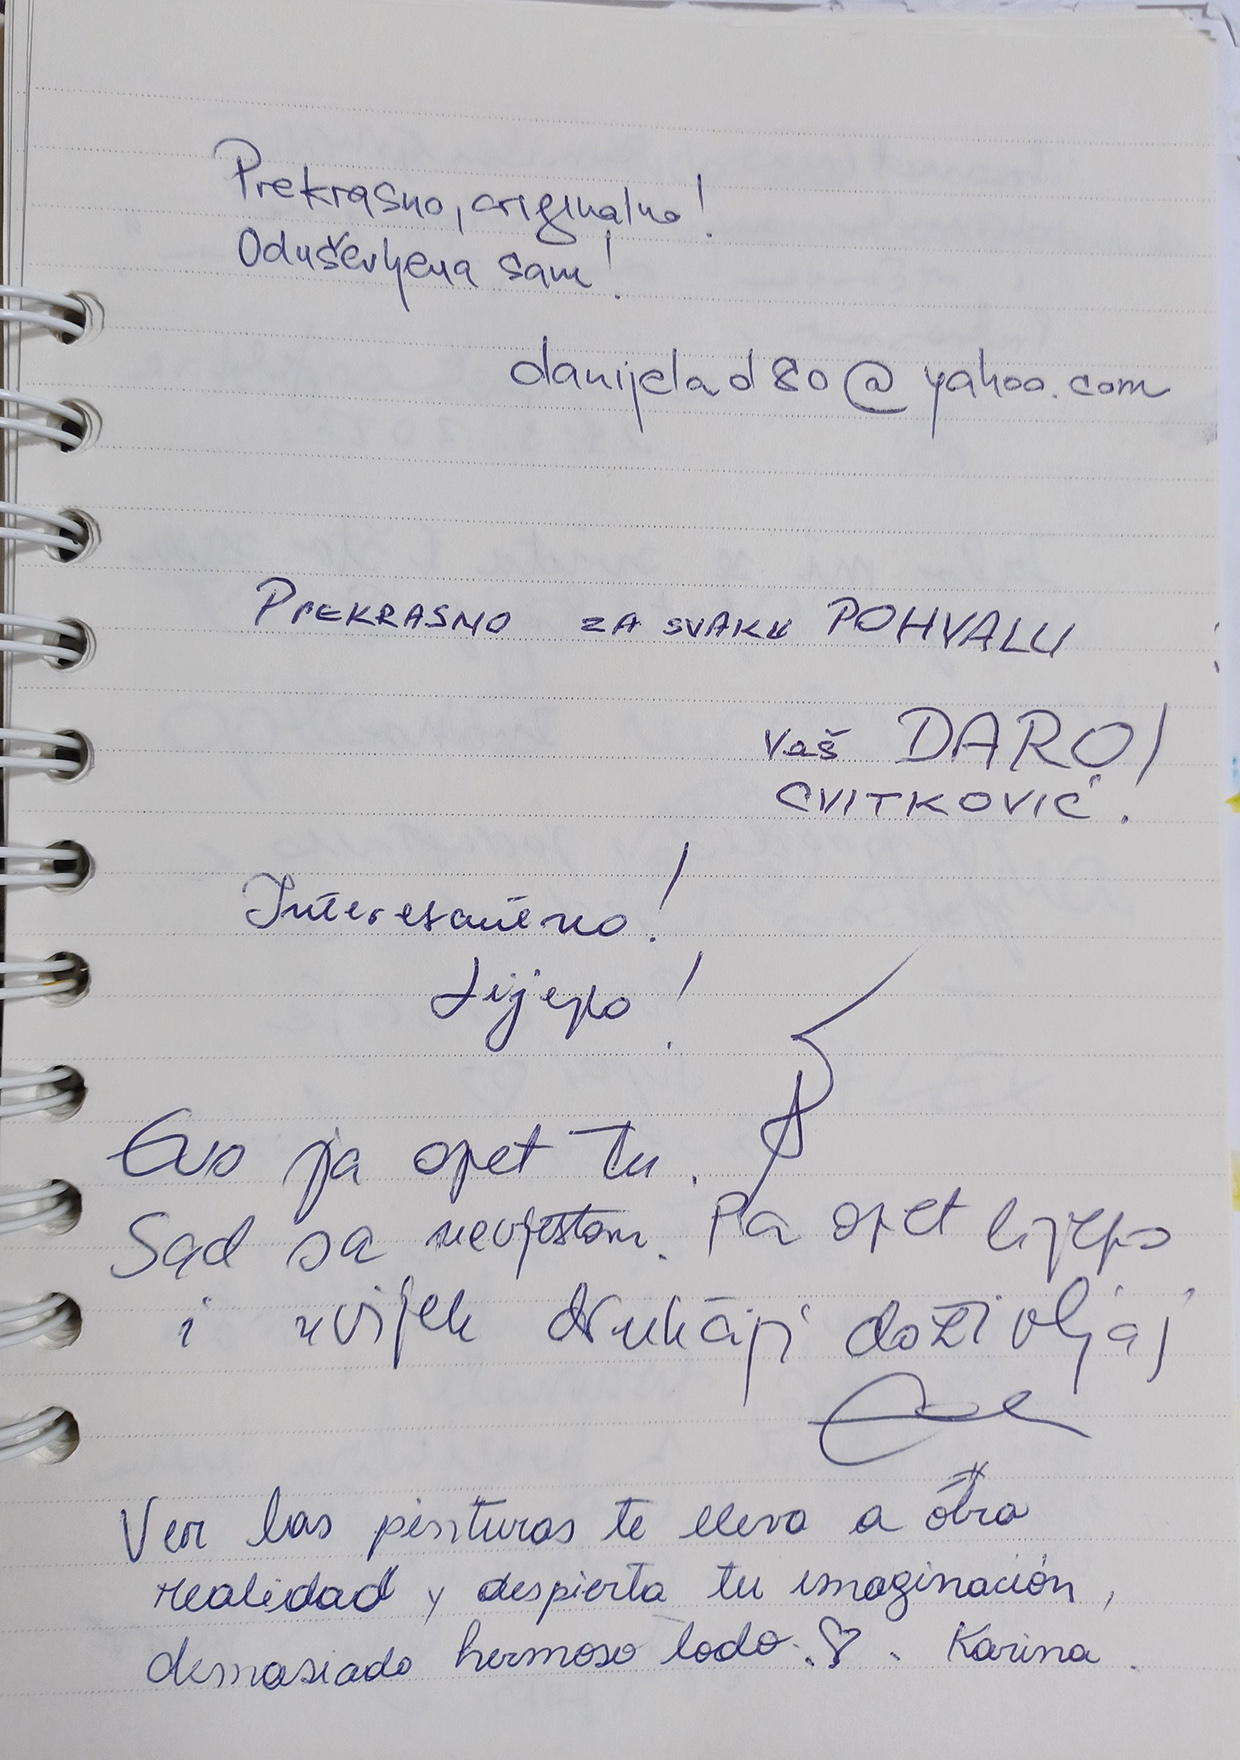 Prekrasno, originalno!
Oduševljena sam!
danijelad80@yahoo.com
PREKRASNO ZA SVAKU POHVALU
Vaš DARO
CVITKOVIĆ.
Interesantno!
Lijepo!
Evo ja opet tu.
Sad sa nevjestom. Pa opet lijepo
i uvijek drukčiji doživljaj
Ver las pinturas te lleva a otra
realidad y despierta tu imaginación,
demasiado hermoso todo. ♡. Karina.